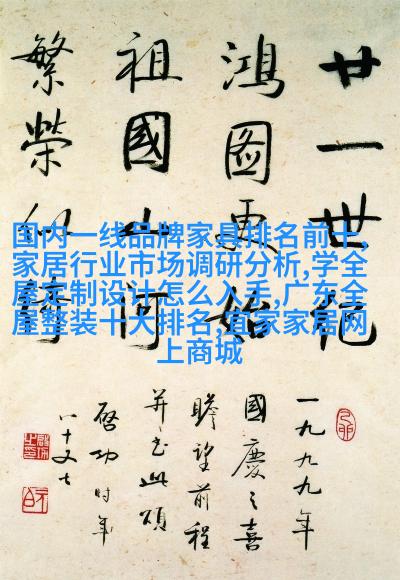 廿一世紀
鴻圖更始
祖國山河
繁榮似
国内一线品牌家具排名前十,
家居行业市场调研分析,学全
屋定制设计怎么入手,广东全
屋整装十大排名,宜家家居网
上商城
一九九九年
國慶之喜
瞻望前程
并书此頌
啓功時年
八十又七